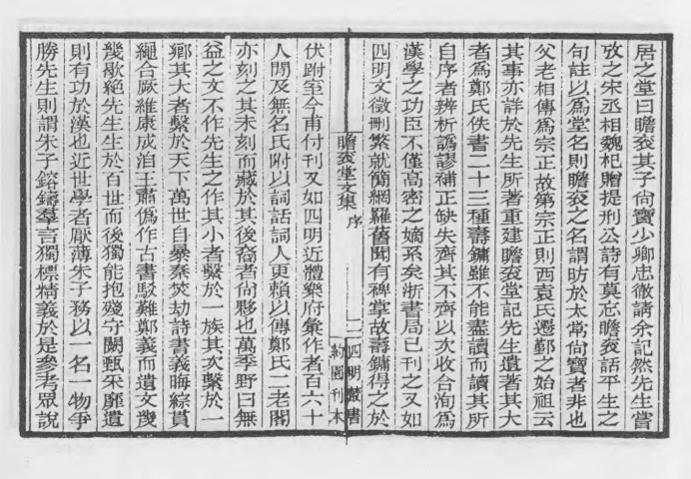 居之堂曰瞻袞其子尙寶少卿忠徹請余記然先生嘗
攷之宋丞相魏杞贈提刑公詩有莫忘瞻袞話平生之
句註以爲堂名則瞻袞之名謂昉於太常尙寶者非也
父老相傳爲宗正故第宗正則西袁氏遷鄞之始祖云
其事亦詳於先生所著重建瞻袞堂記先生遺著其大
者爲鄭氏佚書二十三種壽鏞雖不能盡讀而讀其所
自序者辨析譌謬補正缺失齊其不齊以次收合洵爲
漢學之功臣不僅高密之嫡系矣浙書局已刊之又如
四明文徵刪繁就簡網羅舊聞有裨掌故壽鏞得之於
瞻袞堂文集 序 二 四明叢書
約園刊本
伏跗室今甫付刊又如四明近體樂府彙作者百六十
人閒及無名氏附以詞話詞人更賴以傳鄭氏二老閣
亦刻之其未刻而藏於其後裔者尙夥也萬季野曰無
益之文不作先生之作其小者繫於一族其次繫於一
鄕其大者繫於天下萬世自暴秦焚劫詩書義晦綜貫
繩合厥維康成洎王肅僞作古書駁難鄭義而遺文墜
幾歇絶先生生於百世而後獨能抱殘守闕甄釆靡遺
則有功於漢也近世學者厭薄朱子務以一名一物爭
勝先生則謂朱子鎔鑄羣言獨標精義於是參考眾說